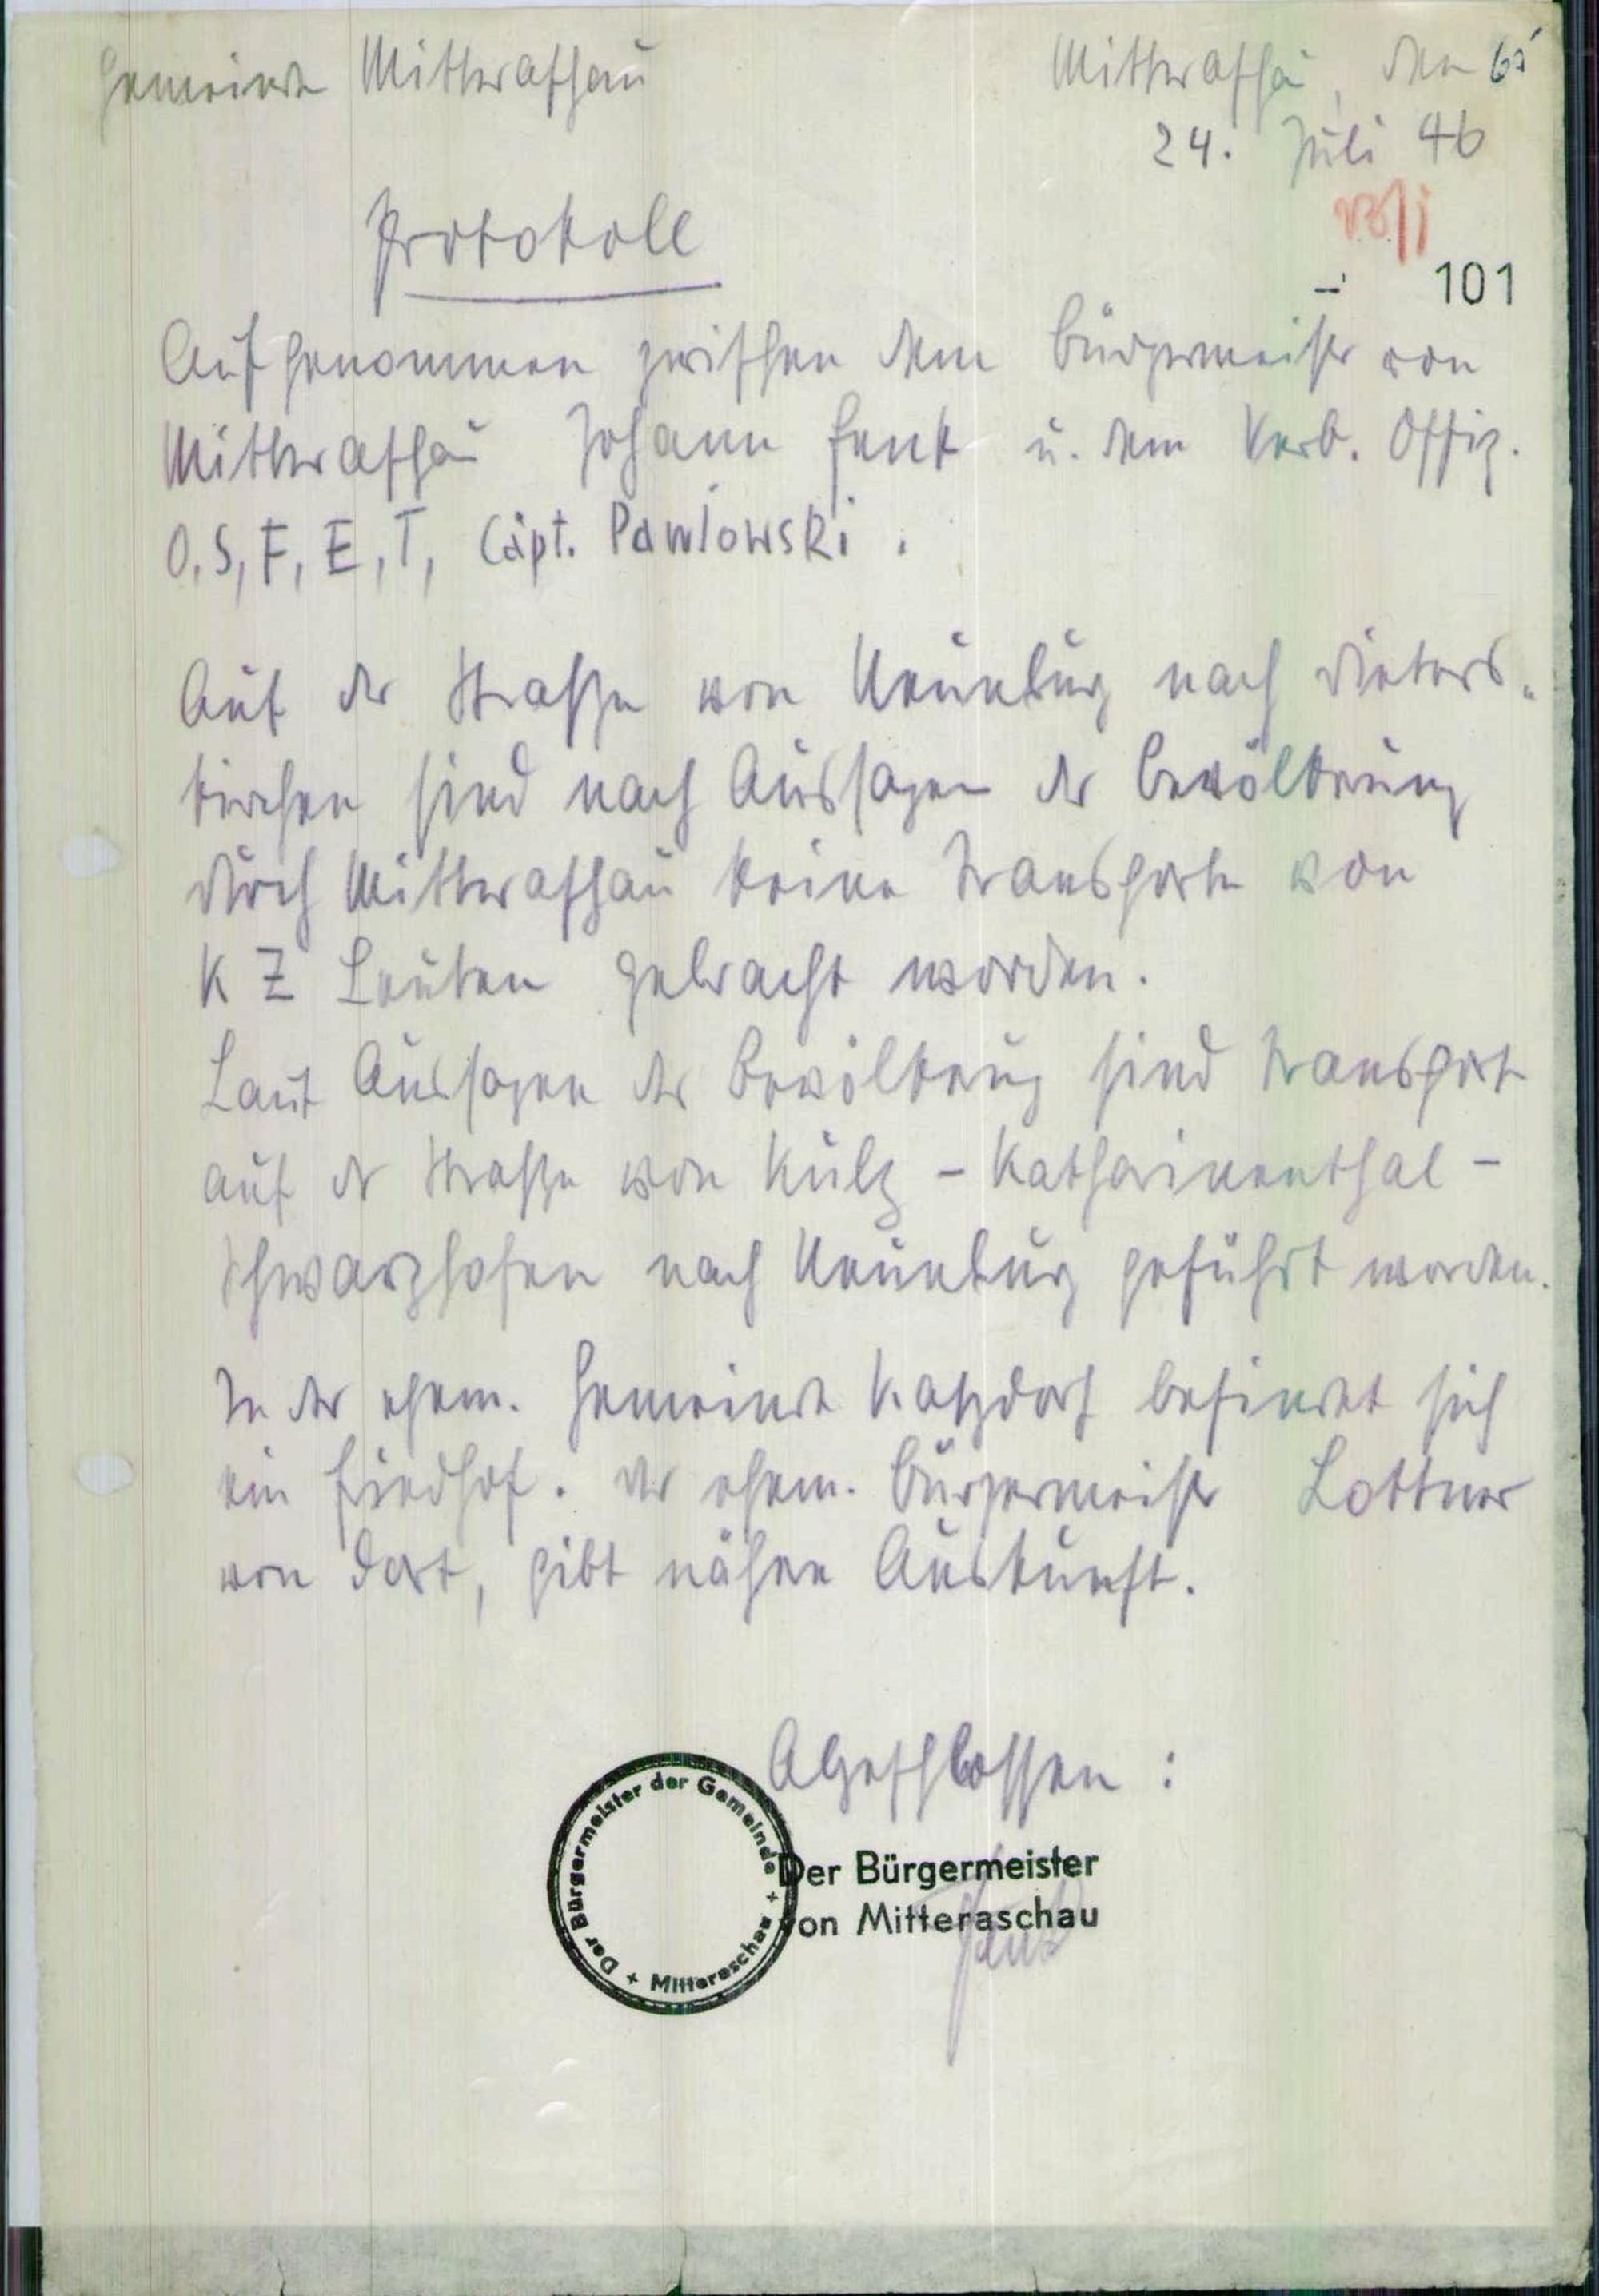 Gemeinde Mitteraschau
Mitteraschau, den 65
24. Juli 46
Protokoll
101
Aufgenommen zwischen dem Bürgermeister von
Mitteraschau Johann Fenk u. dem Verb. Offiz.
O, S, F, E, T, Capt. Pawlowski.
Auf der Strasse von Neunburg nach Dieters-
kirchen sind nach Aussagen der Bevölkerung
durch Mitteraschau keine Transporte von
K Z Leuten gebracht worden.
Laut Aussagen der Bevölkerung sind Transporte
auf der Strasse von Kulz - Katharinenthal -
Schwarzhofen nach Neunburg geführt worden.
In der ehem. Gemeinde Katzdorf befindet sich
ein Friedhof. Der ehem. Bürgermeister Lottner
von dort, gibt nähere Auskunft.
Abgeschlossen :
Der Bürgermeister
von Mitteraschau
Fenk
Der Bürgermeister der Gemeinde + Mitteraschau +